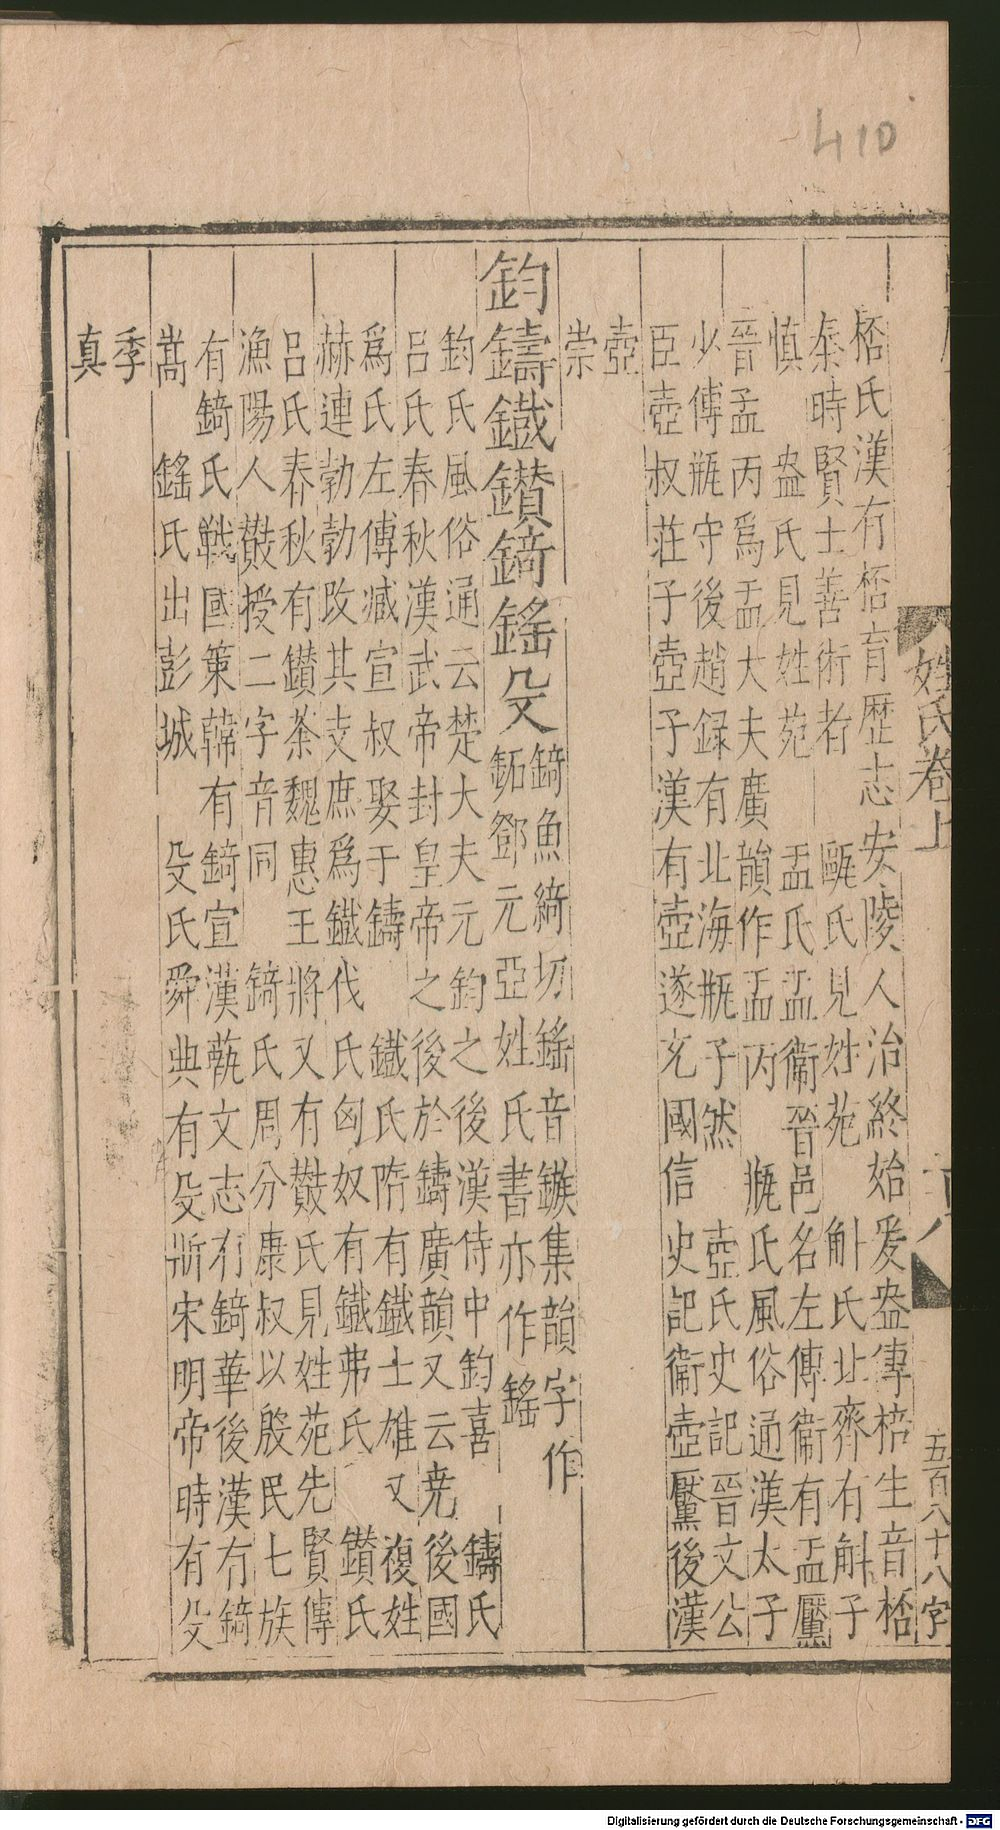 410
姓氏卷上
五百八十八字
桮氏漢有桮育歷志安陵人治終始爰盎傳棓生音桮
秦時賢士善術者　甌氏見姓苑　斛氏北齊有斛子
慎　盎氏見姓苑　盂氏盂衞晉邑名左傳衞有盂黶
晉盂丙爲盂大夫廣韻作盂丙　瓶氏風俗通漢太子
少傅瓶守後趙録有北海瓶子然　壺氏史記晉文公
臣壺叔莊子壺子漢有壺遂玄國信　史記衞壺黶後漢
壺
崇
鈞鑄鐵鑽錡鎐殳
錡魚綺切鎐音鏃集韻字作
鉐鄧元亞姓氏書亦作鎐
鈞氏風俗通云楚大夫元鈞之後漢侍中鈞喜　鑄氏
呂氏春秋漢武帝封皇帝之後於鑄廣韻又云尭後國
爲氏左傳臧宣叔娶于鑄　鐵氏隋有鐵士雄又複姓
赫連勃勃改其支庶爲鐵伐氏匈奴有鐵弗氏　鑽氏
呂氏春秋有鑽荼魏惠王將又有鼖氏見姓苑先賢傳
漁陽人鼖授二字音同　錡氏周分康叔以殷民七族
有錡氏戰國策韓有錡宣漢蓺文志有錡華後漢有錡
嵩　鎐氏出彭城　殳氏舜典有殳斨宋明帝時有殳
季
真
Digitalisierung gefördert durch die Deutsche Forschungsgemeinschaft - DFG